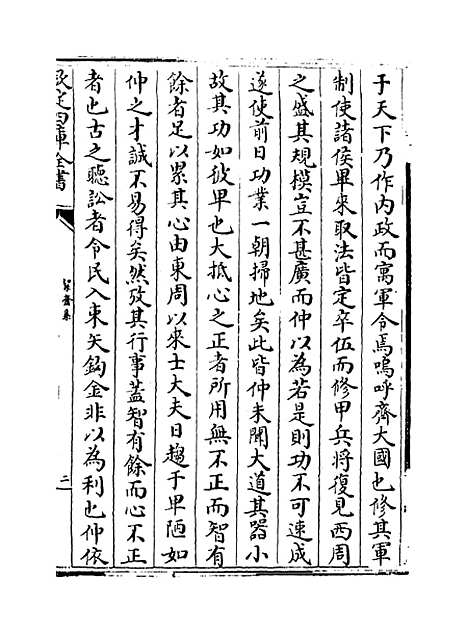 于天下乃作内政而寓軍令焉嗚呼齊大國也修其軍
制使諸侯畢來取法皆定卒伍而修甲兵將復見西周
之盛其規模豈不甚廣而仲以為若是則功不可速成
遂使前日功業一朝掃地矣此皆仲未聞大道其器小
故其功如彼卑也大抵心之正者所用無不正而智有
餘者足以累其心由東周以來士大夫日趨于卑陋如
仲之才誠不易得矣然攷其行事蓋智有餘而心不正
者也古之聽訟者令民入束矢鈞金非以為利也仲依
欽定四庫全書
絜齋集
二